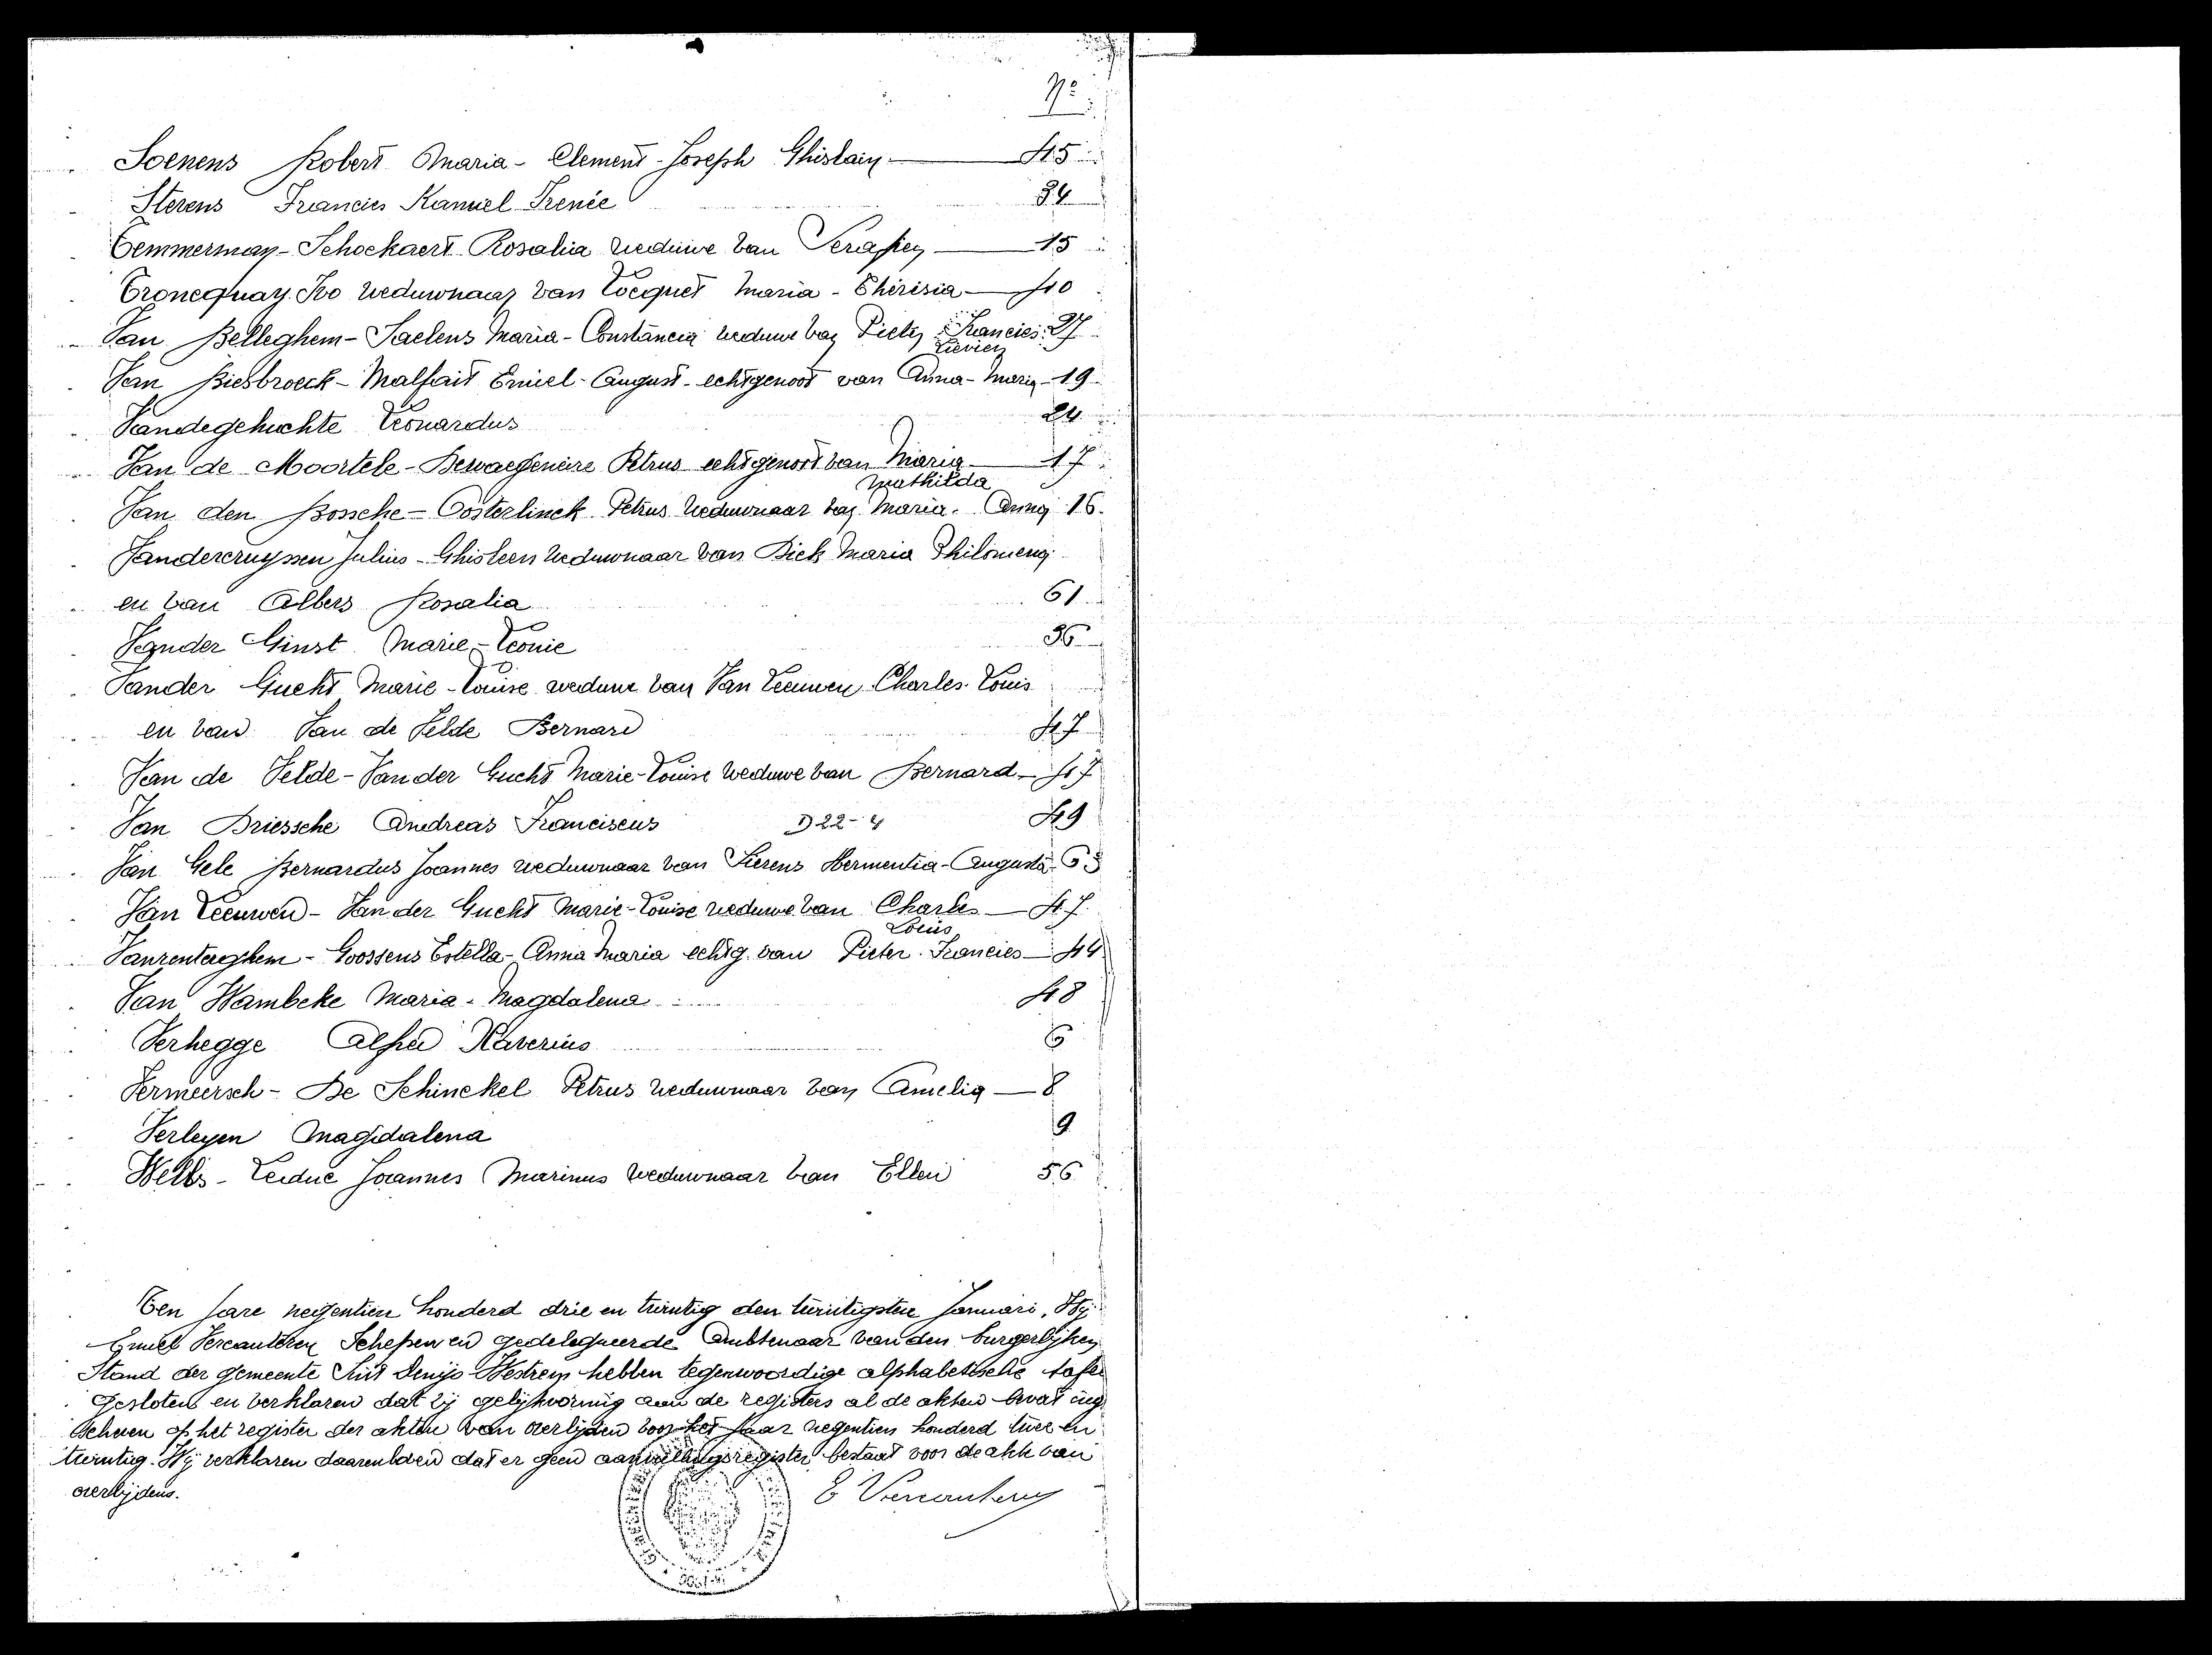 No
Soenens Robert Maria - Clement - Joseph Ghislain 45
Stevens Francies Kamiel Renée 34
Temmerman - Schockaert Rosalia weduwe van Serafien 15
Tronequay Ivo weduwnaar van Locquet Maria - Thérésia 40
Van Belleghem - Saelens Maria - Constancia weduwe van Pieter Francies 27
Lievien
Van Biesbroeck - Malfait Emiel - August - echtgenoot van Anna - Maria 19
Vandegehuchte Leonardus 24
Van de Moortele - Dewaegeneire Petrus echtgenoot van Maria 17
Mathilda
Van den Bossche - Oosterlinck Petrus weduwnaar van Maria - Anna 16
Vandercruyssen Julius - Ghisleen weduwnaar van Dick Maria Philomena
en van Albers Rosalia 61
Vander Ginst Marie - Leonie 36
Vander Gucht Marie - Louise weduwe van Van Leeuwen Charles Louis
en van Van de Velde Bernard 47
Van de Velde - Van der Gucht Marie - Louise weduwe van Bernard 47
Van Driessche Andreas Franciscus D 22 - 4 49
Van Gele Bernardus Joannes weduwnaar van Sierens Hermentia - Augusta 53
Van Leeuwen - Van der Gucht Marie - Louise weduwe van Charles 47
Louis
Vanrenterghem - Goossens Estella - Anna Maria echtg. van Pieter - Francies 44
Van Wambeke Maria - Magdalena 48
Verhegge Alfred Xaverius 6
Vermeersch - De Schinckel Petrus weduwnaar van Amelia 8
Verleyen Magdalena 9
Wells - Leduc Joannes Marinus weduwnaar van Ellen 56
Ten jare negentien honderd drie en twintig den twintigsten Januari, Wij
Emiel Vercauteren Schepen en gedelegueerde Ambtenaar van den burgerlijken
Stand der gemeente Sint Denijs Westrem hebben tegenwoordige alphabetische tafel
gesloten en verklaren dat zij gelijkvormig aan de registers al de akten bevat inge
schreven op het register der akten van overlijden voor het jaar negentien honderd twee en
twintig. Wij verklaren daarenboven dat er geen aanvullingsregister bestaat voor de akte van
overlijdens.
E Vercauteren